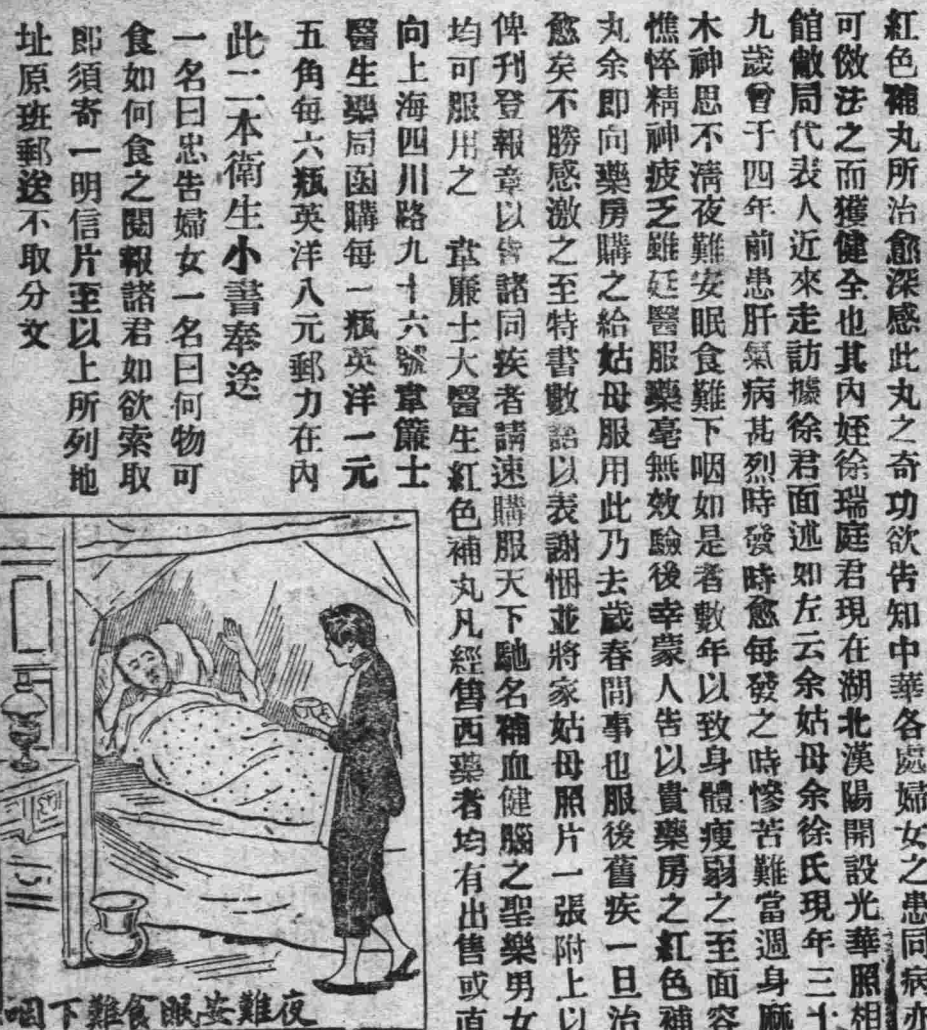 紅色補丸所治愈深感此丸之奇功欲告知中華各處婦女之患同病亦
可傚法之而獲健全也其內姪徐瑞庭君現在湖北漢陽開設光華照相
館敝局代表人近來走訪據徐君面述如左云余姑母余徐氏現年三十
九歲曾于四年前患肝氣病甚烈時發時愈每發之時慘苦難當週身麻
木神思不淸夜難安眠食難下咽如是者數年以致身體瘦弱之至面容
憔悴精神疲乏雖延醫服藥毫無效驗後幸蒙人告以貴藥房之紅色補
丸余即向藥房購之給姑母服用此乃去歲春間事也服後舊疾一旦治
愈矣不勝感激之至特書數語以表謝悃並將家姑母照片一張附上以
俾刊登報章以告諸同疾者請速購服天下馳名補血健腦之聖藥男女
均可服用之 韋廉士大醫生紅色補丸凡經售西藥者均有出售或直
向上海四川路九十六號韋簾士
醫生藥局函購每一瓶英洋一元
五角每六瓶英洋八元郵力在內
此二本衛生小書奉送
一名曰忠告婦女一名曰何物可
食如何食之閱報諸君如欲索取
即須寄一明信片至以上所列地
址原班郵送不取分文
夜難安眠食難下咽